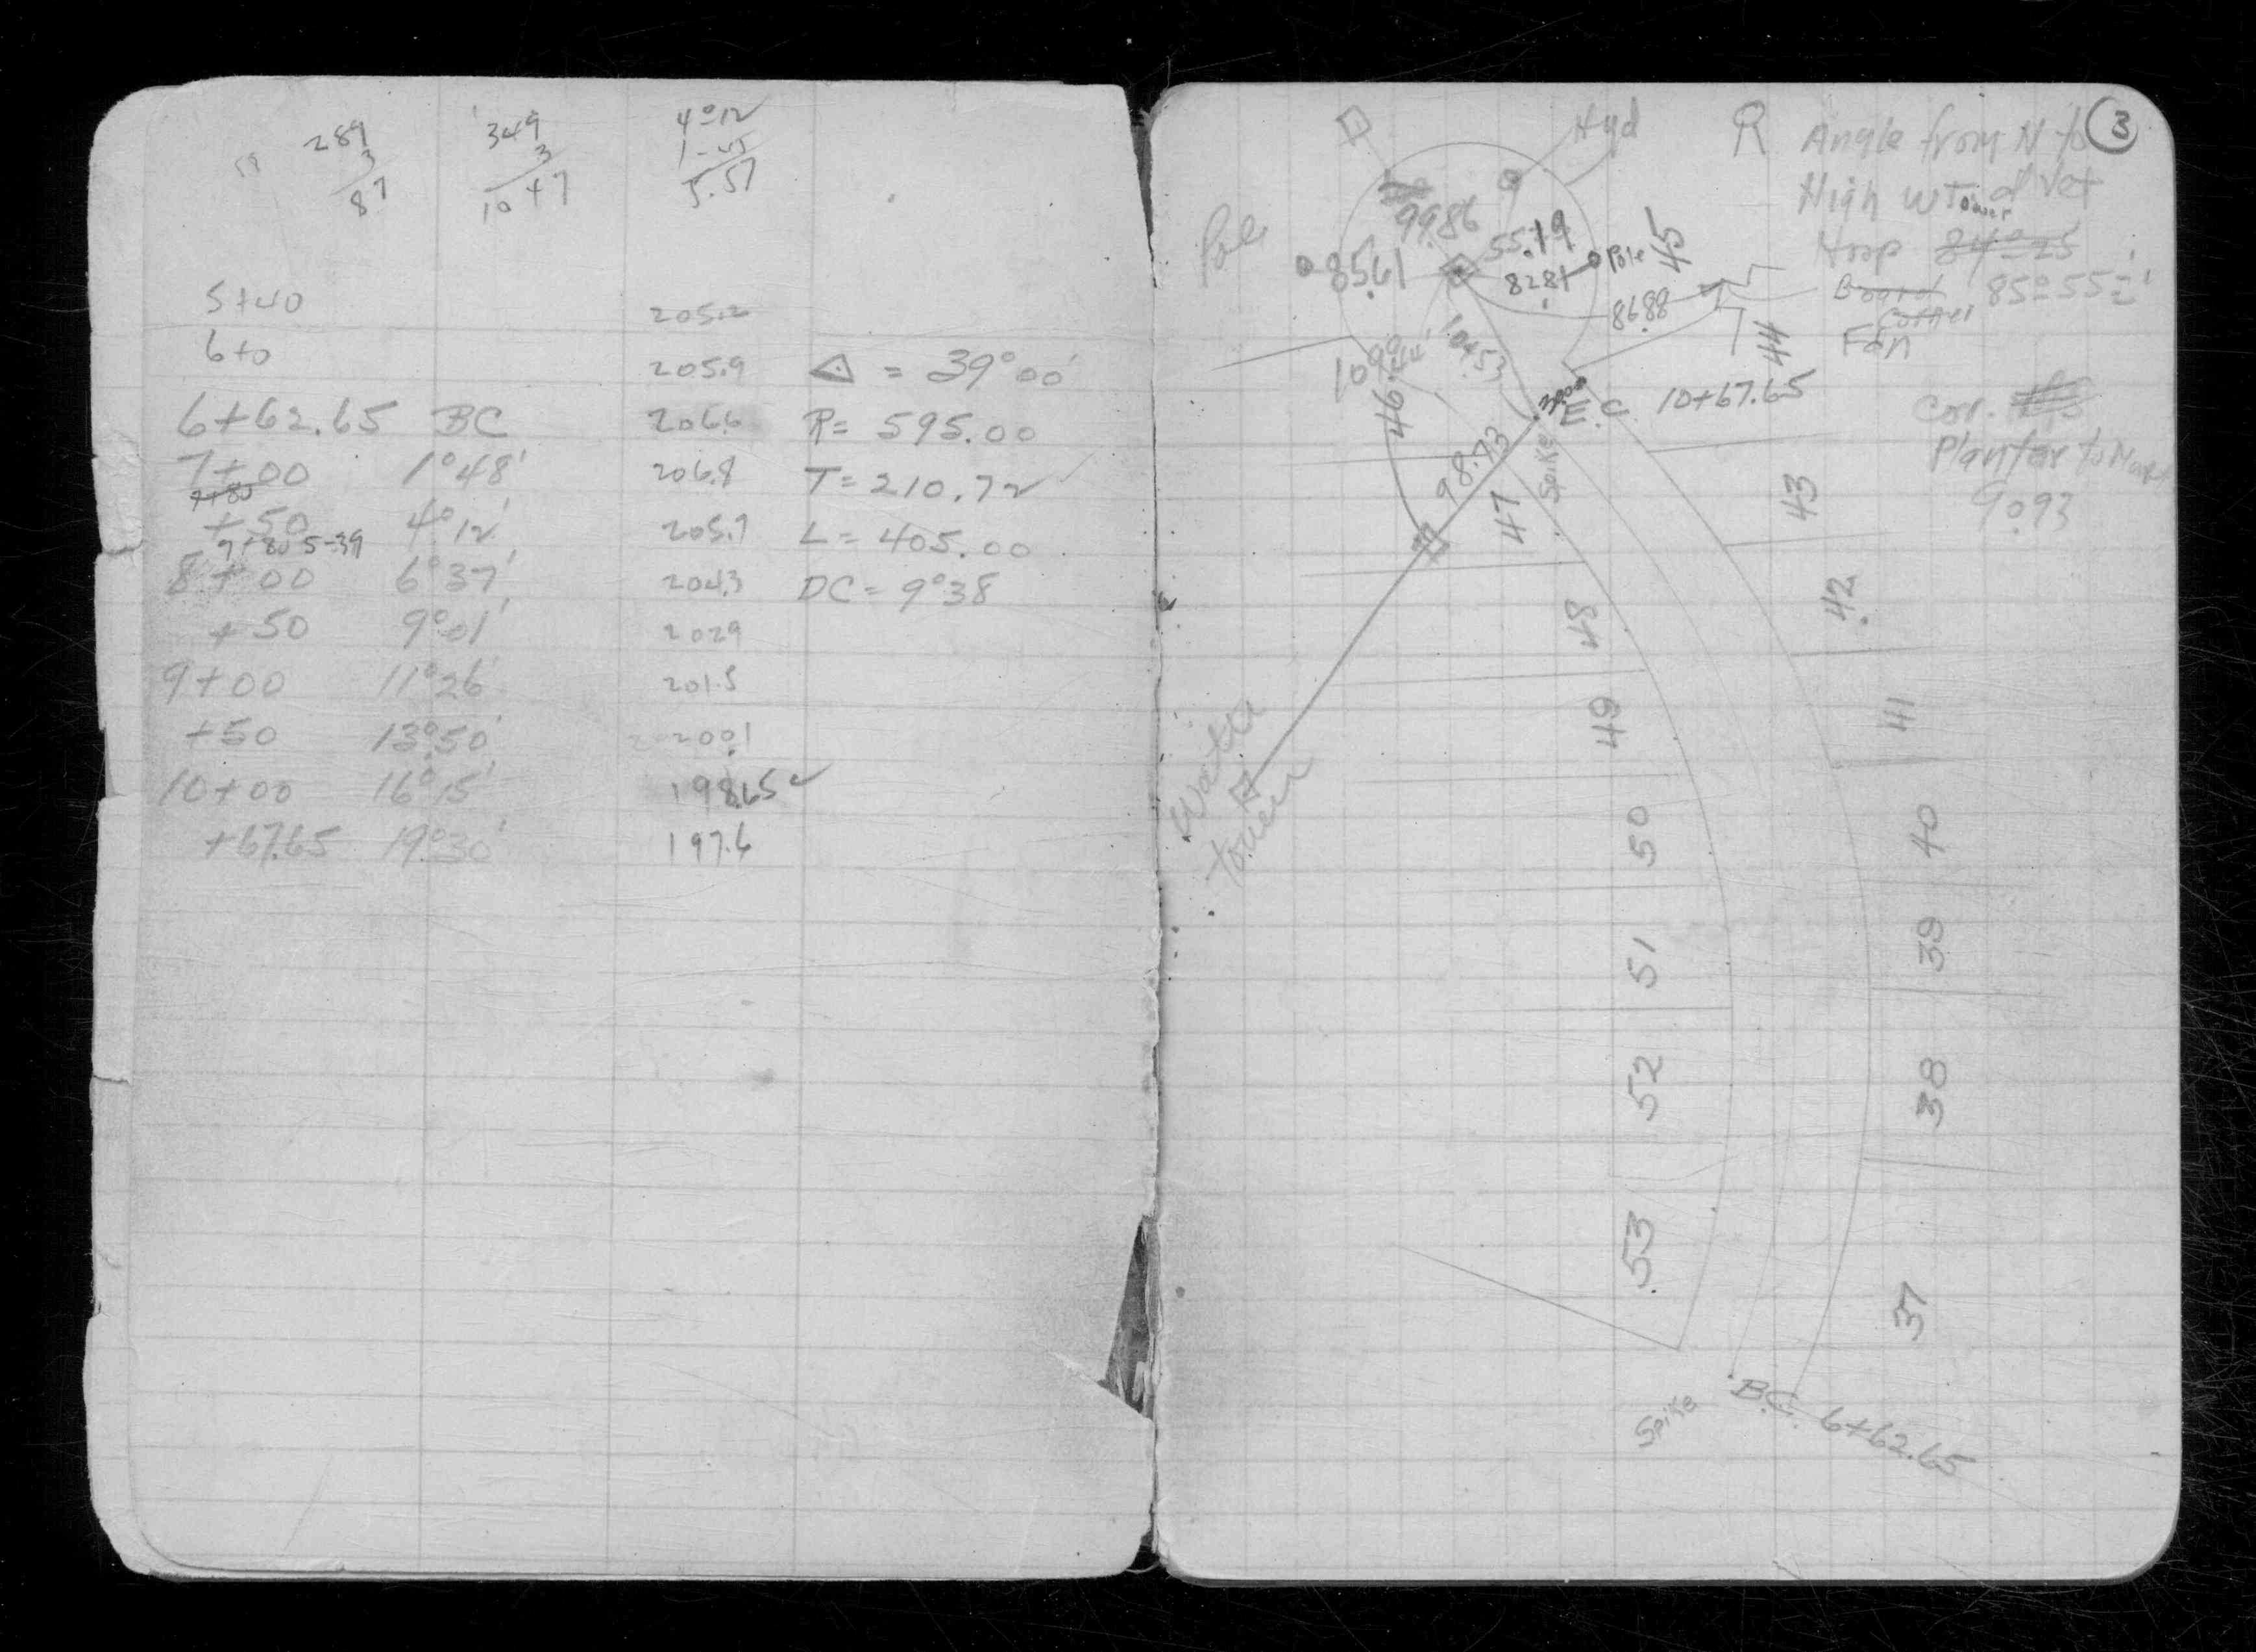 289
3
87
349
3
1047
4°12
1-45
5.57
5+40 205.2
6+0 205.9 △ = 39°00'
6+62.65 BC 206.6 R= 595.00
7+00 1°48' 206.8 T= 210.72
7+80
+50 4°12' 205.7 L= 405.00
7+80 5-39
8+00 6°37' 204.3 DC= 9°38
+50 9°01' 202.9
9+00 11°26' 201.5
+50 13°50' 200.1
10+00 16°15' 198.65 ✓
+67.65 19°30' 197.6
3
Hyd
R Angle from N to
High W Tower of Vet
Hosp 84°25'
85°55'
Fan
Pole
85.61
99.86
55.19
82.81
Pole
86.88
104.53
45
44
46
E.C. 10+67.65
Spike
98.73
Cor.
Planter to N
90.93
47
43
48
42
49
41
50
40
51
39
52
38
53
37
Water
tower
Spike
B.C. 6+62.65